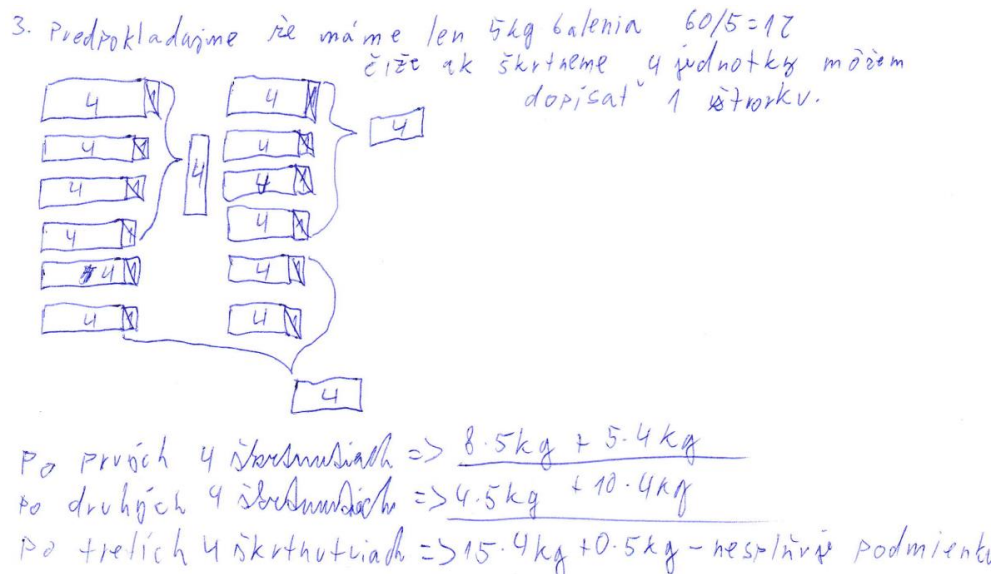 3. Predpokladajme že máme len 5kg balenia 60/5=12
čiže ak škrtneme 4 jednotky môžem
dopísať 1 štvorku.
4 4
4 4 4
4 4
4 4
4 4
4 4
4 4
4
Po prvých 4 škrtnutiach => 8·5kg + 5·4kg
Po druhých 4 škrtnutiach => 4·5kg + 10·4kg
Po tretích 4 škrtnutiach => 15·4kg + 0·5kg - nesplňuje podmienku